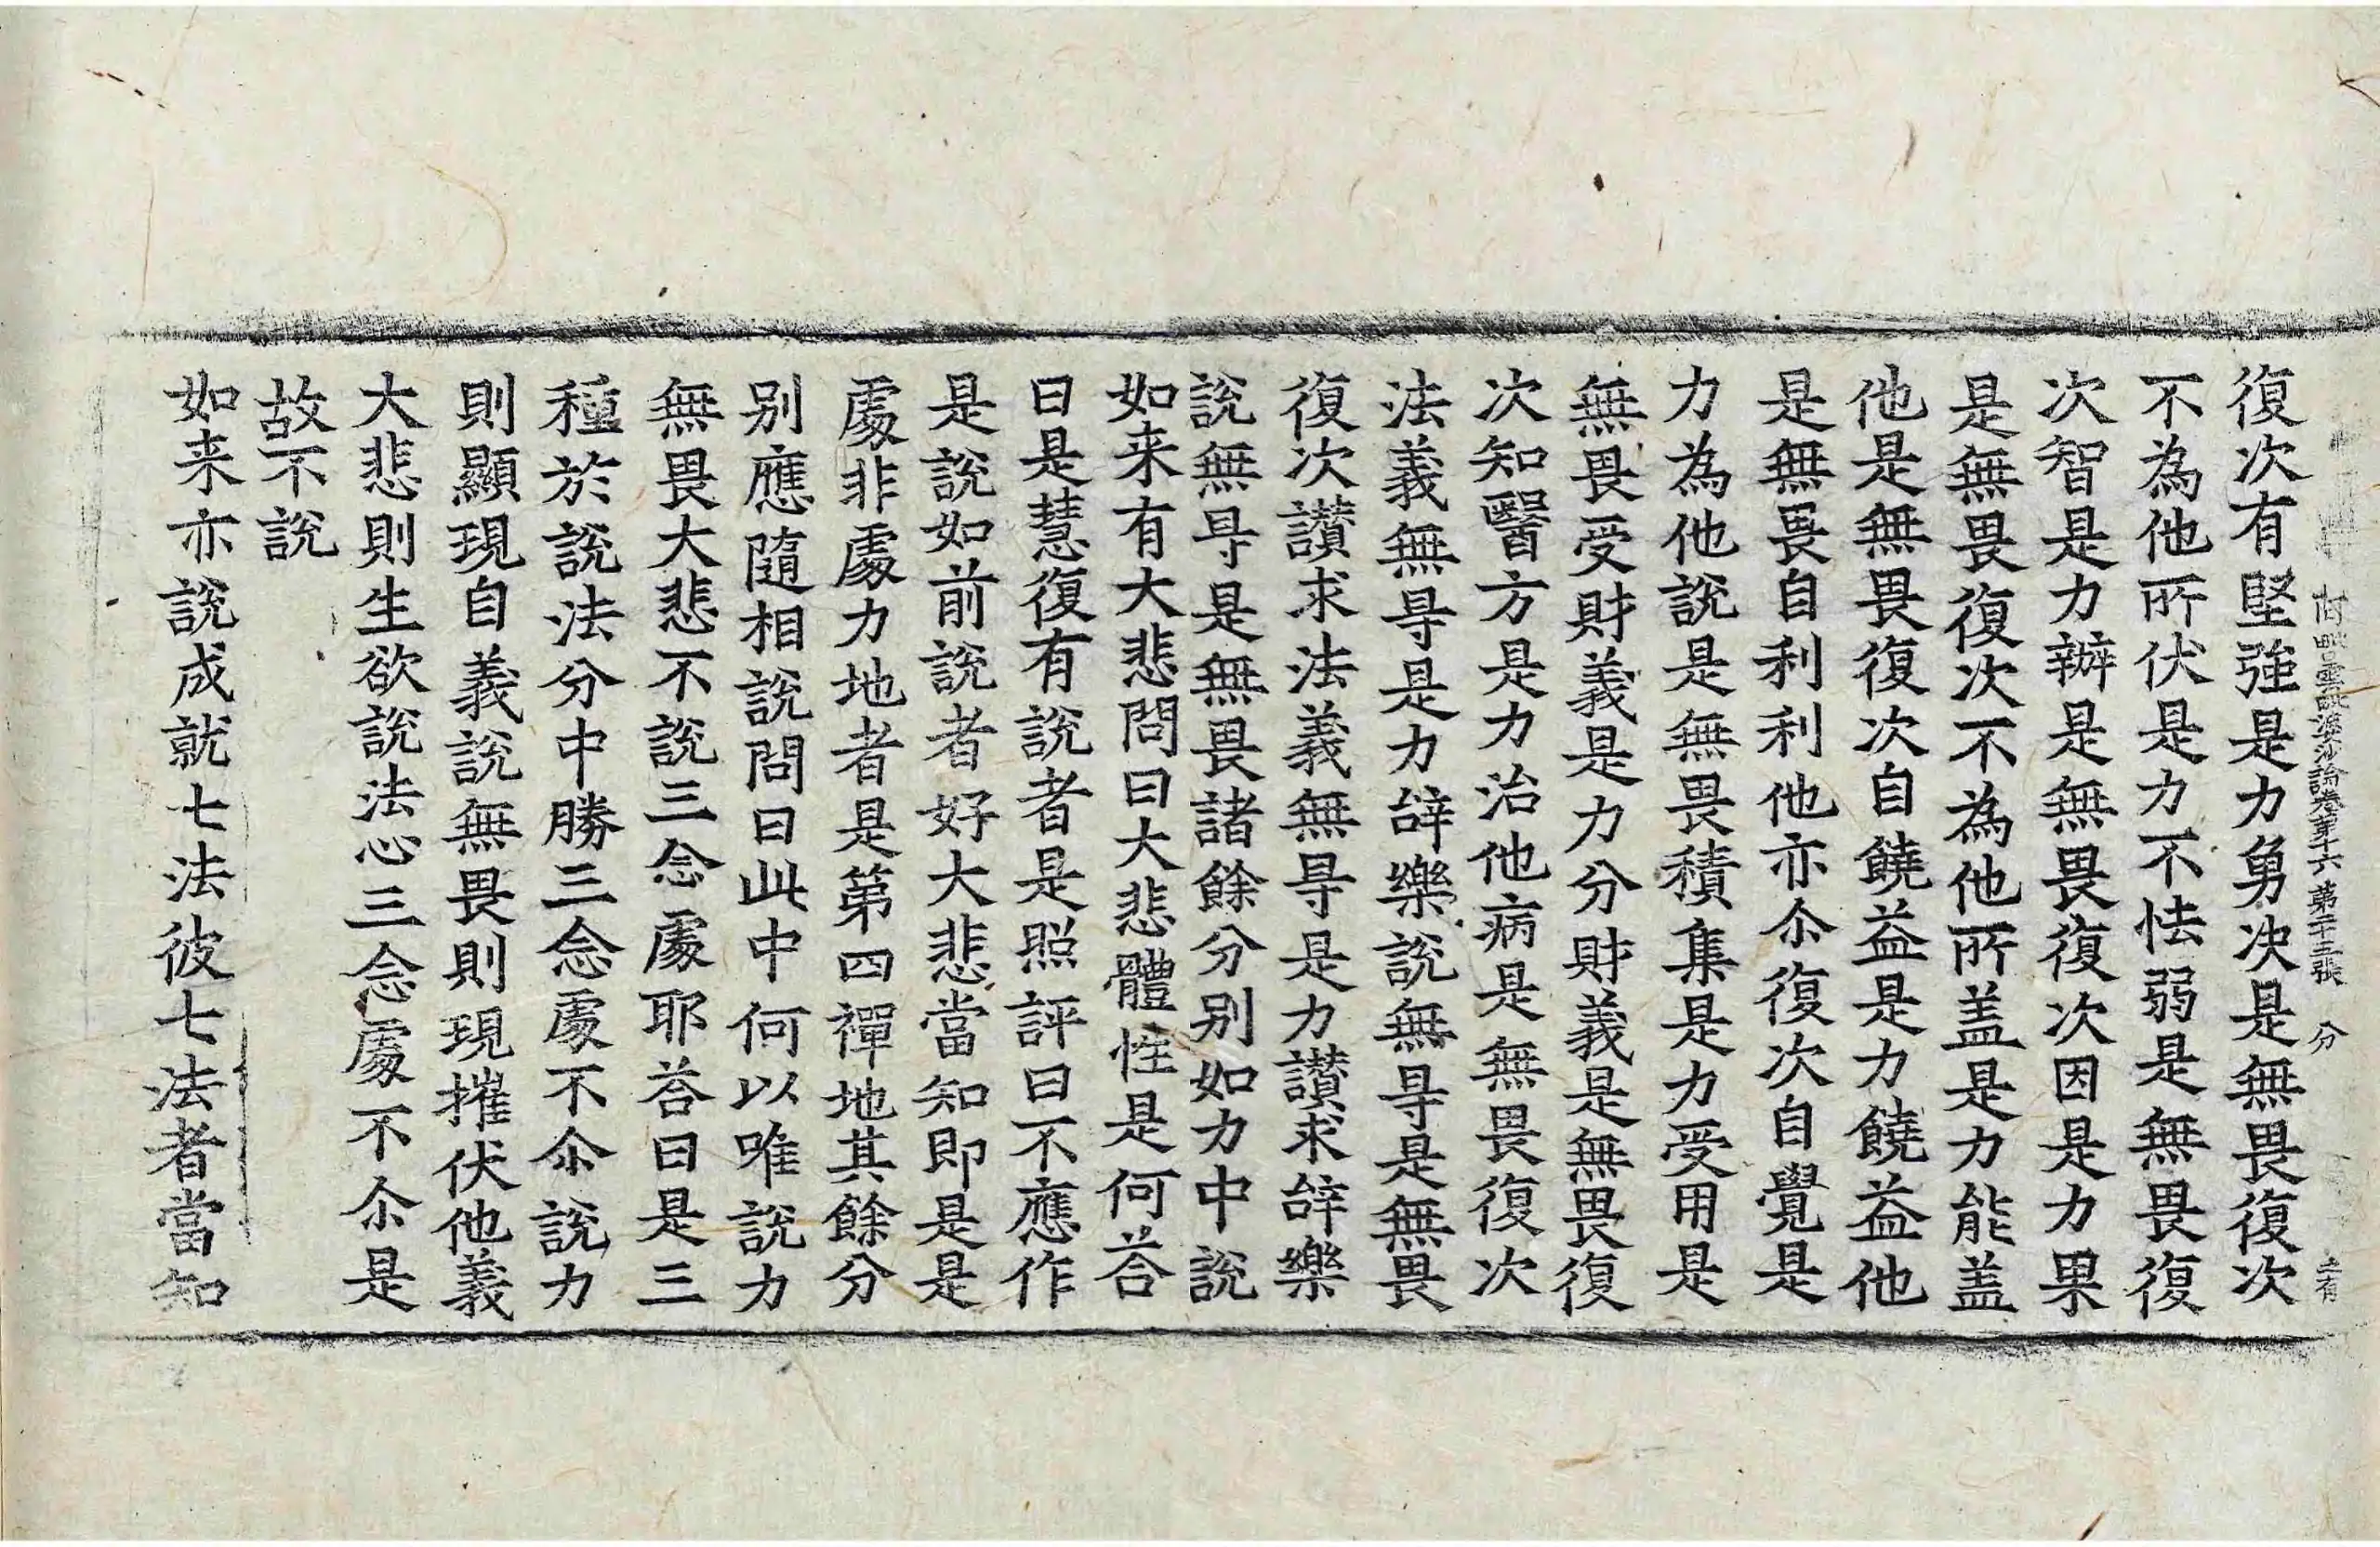 阿毗曇毗婆沙論卷第十六 第二十三張 分
復次有堅強是力勇决是無畏復次
不為他所伏是力不怯弱是無畏復
次智是力辦是無畏復次因是力果
是無畏復次不為他所盖是力能盖
他是無畏復次自饒益是力饒益他
是無畏自利利他亦尒復次自覺是
力為他說是無畏積集是力受用是
無畏受財義是力分財義是無畏復
次知醫方是力治他病是無畏復次
法義無㝵是力辞樂說無㝵是無畏
復次讃求法義無㝵是力讃求辞樂
說無㝵是無畏諸餘分别如力中說
如来有大悲問曰大悲體性是何荅
曰是慧復有說者是照評曰不應作
是說如前說者好大悲當知即是是
處非處力地者是第四禪地其餘分
别應隨相說問曰此中何以唯說力
無畏大悲不說三念處耶荅曰是三
種於說法分中勝三念處不尒說力
則顯現自義說無畏則現摧伏他義
大悲則生欲說法心三念處不尒是
故不說
如来亦說成就七法彼七法者當知